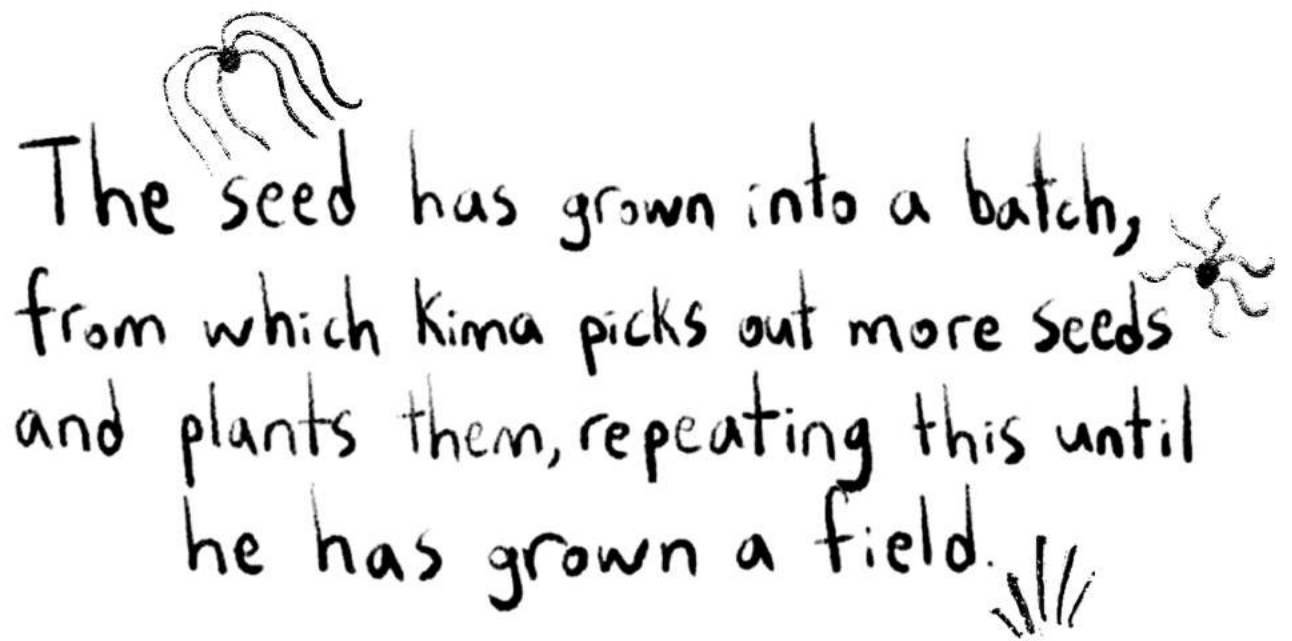 The seed has grown into a batch,
from which Kima picks out more seeds
and plants them, repeating this until
he has grown a field.